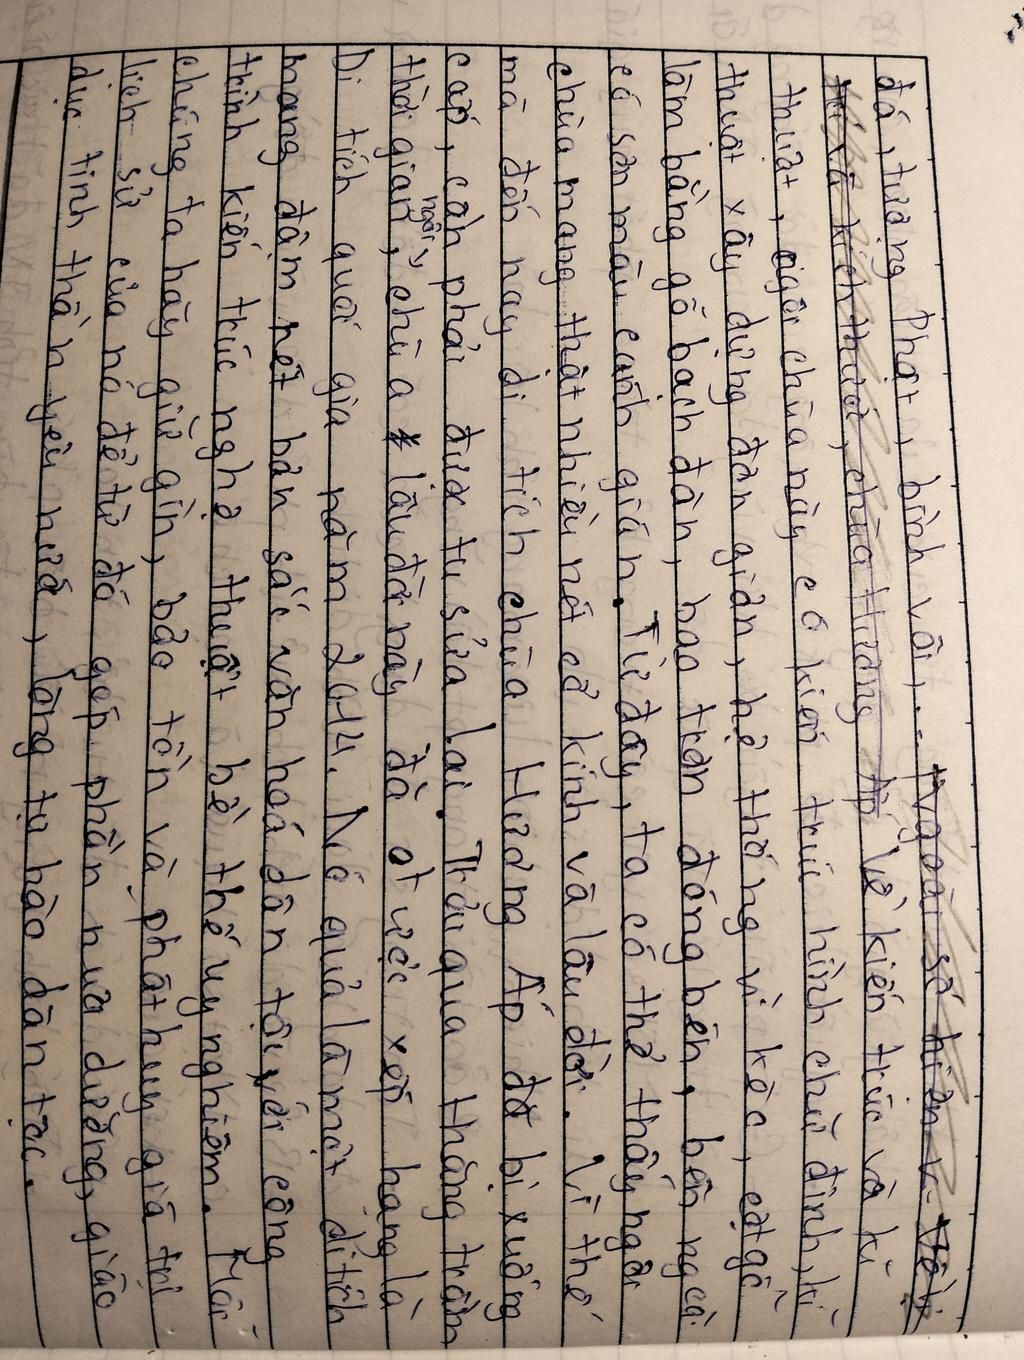 đá, tượng Phật, bình vôi,... Ngoài số hiện v
và kích thước, chùa Hương Ấp Về kiến trúc và kĩ
thuật, ngôi chùa này có kiến trúc hình chữ đinh, kĩ
thuật xây dựng đơn giản, hệ thống vì kèo, cột gỗ
làm bằng gỗ bạch đàn, bào trơn đóng bén, bên ngoài
có sơn màu cánh gián. Từ đây, ta có thể thấy ngôi
chùa mang thật nhiều nét cổ kính và lâu đời. Vì thế
mà đến nay di tích chùa Hương Ấp đã bị xuống
cấp, cần phải được tu sửa lại. Trải qua hàng trăm
thời gian, ngôi chùa lâu đời này đã được xếp hạng là
Di tích quốc gia năm 2014. Nó quả là một di tích
mang đậm nét bản sắc văn hoá dân tộc với công
trình kiến trúc nghệ thuật bề thế uy nghiêm. Mỗi
chúng ta hãy giữ gìn, bảo tồn và phát huy giá trị
lịch sử của nó để từ đó góp phần nuôi dưỡng, giáo
dục tinh thần yêu nước, lòng tự hào dân tộc.